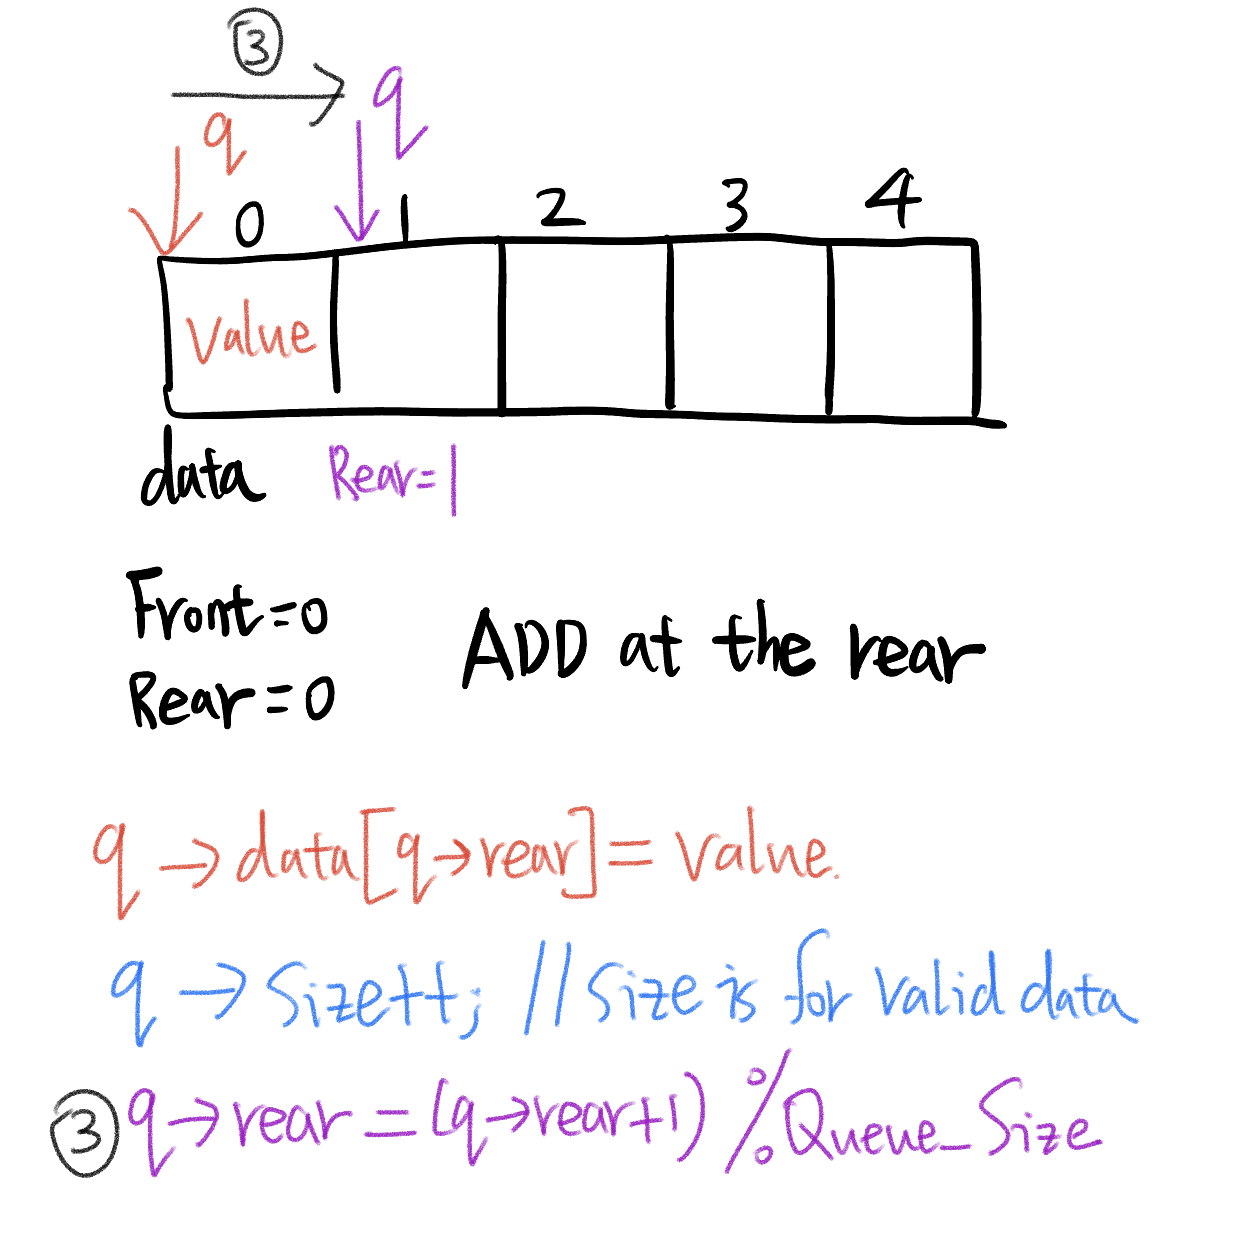 ③
q
q
0 1 2 3 4
Value
data Rear=1
Front=0
Rear=0
ADD at the rear
q→data[q→rear]=value.
q→Size++; //Size is for valid data
③ q→rear=(q→rear+1)%Queue_Size